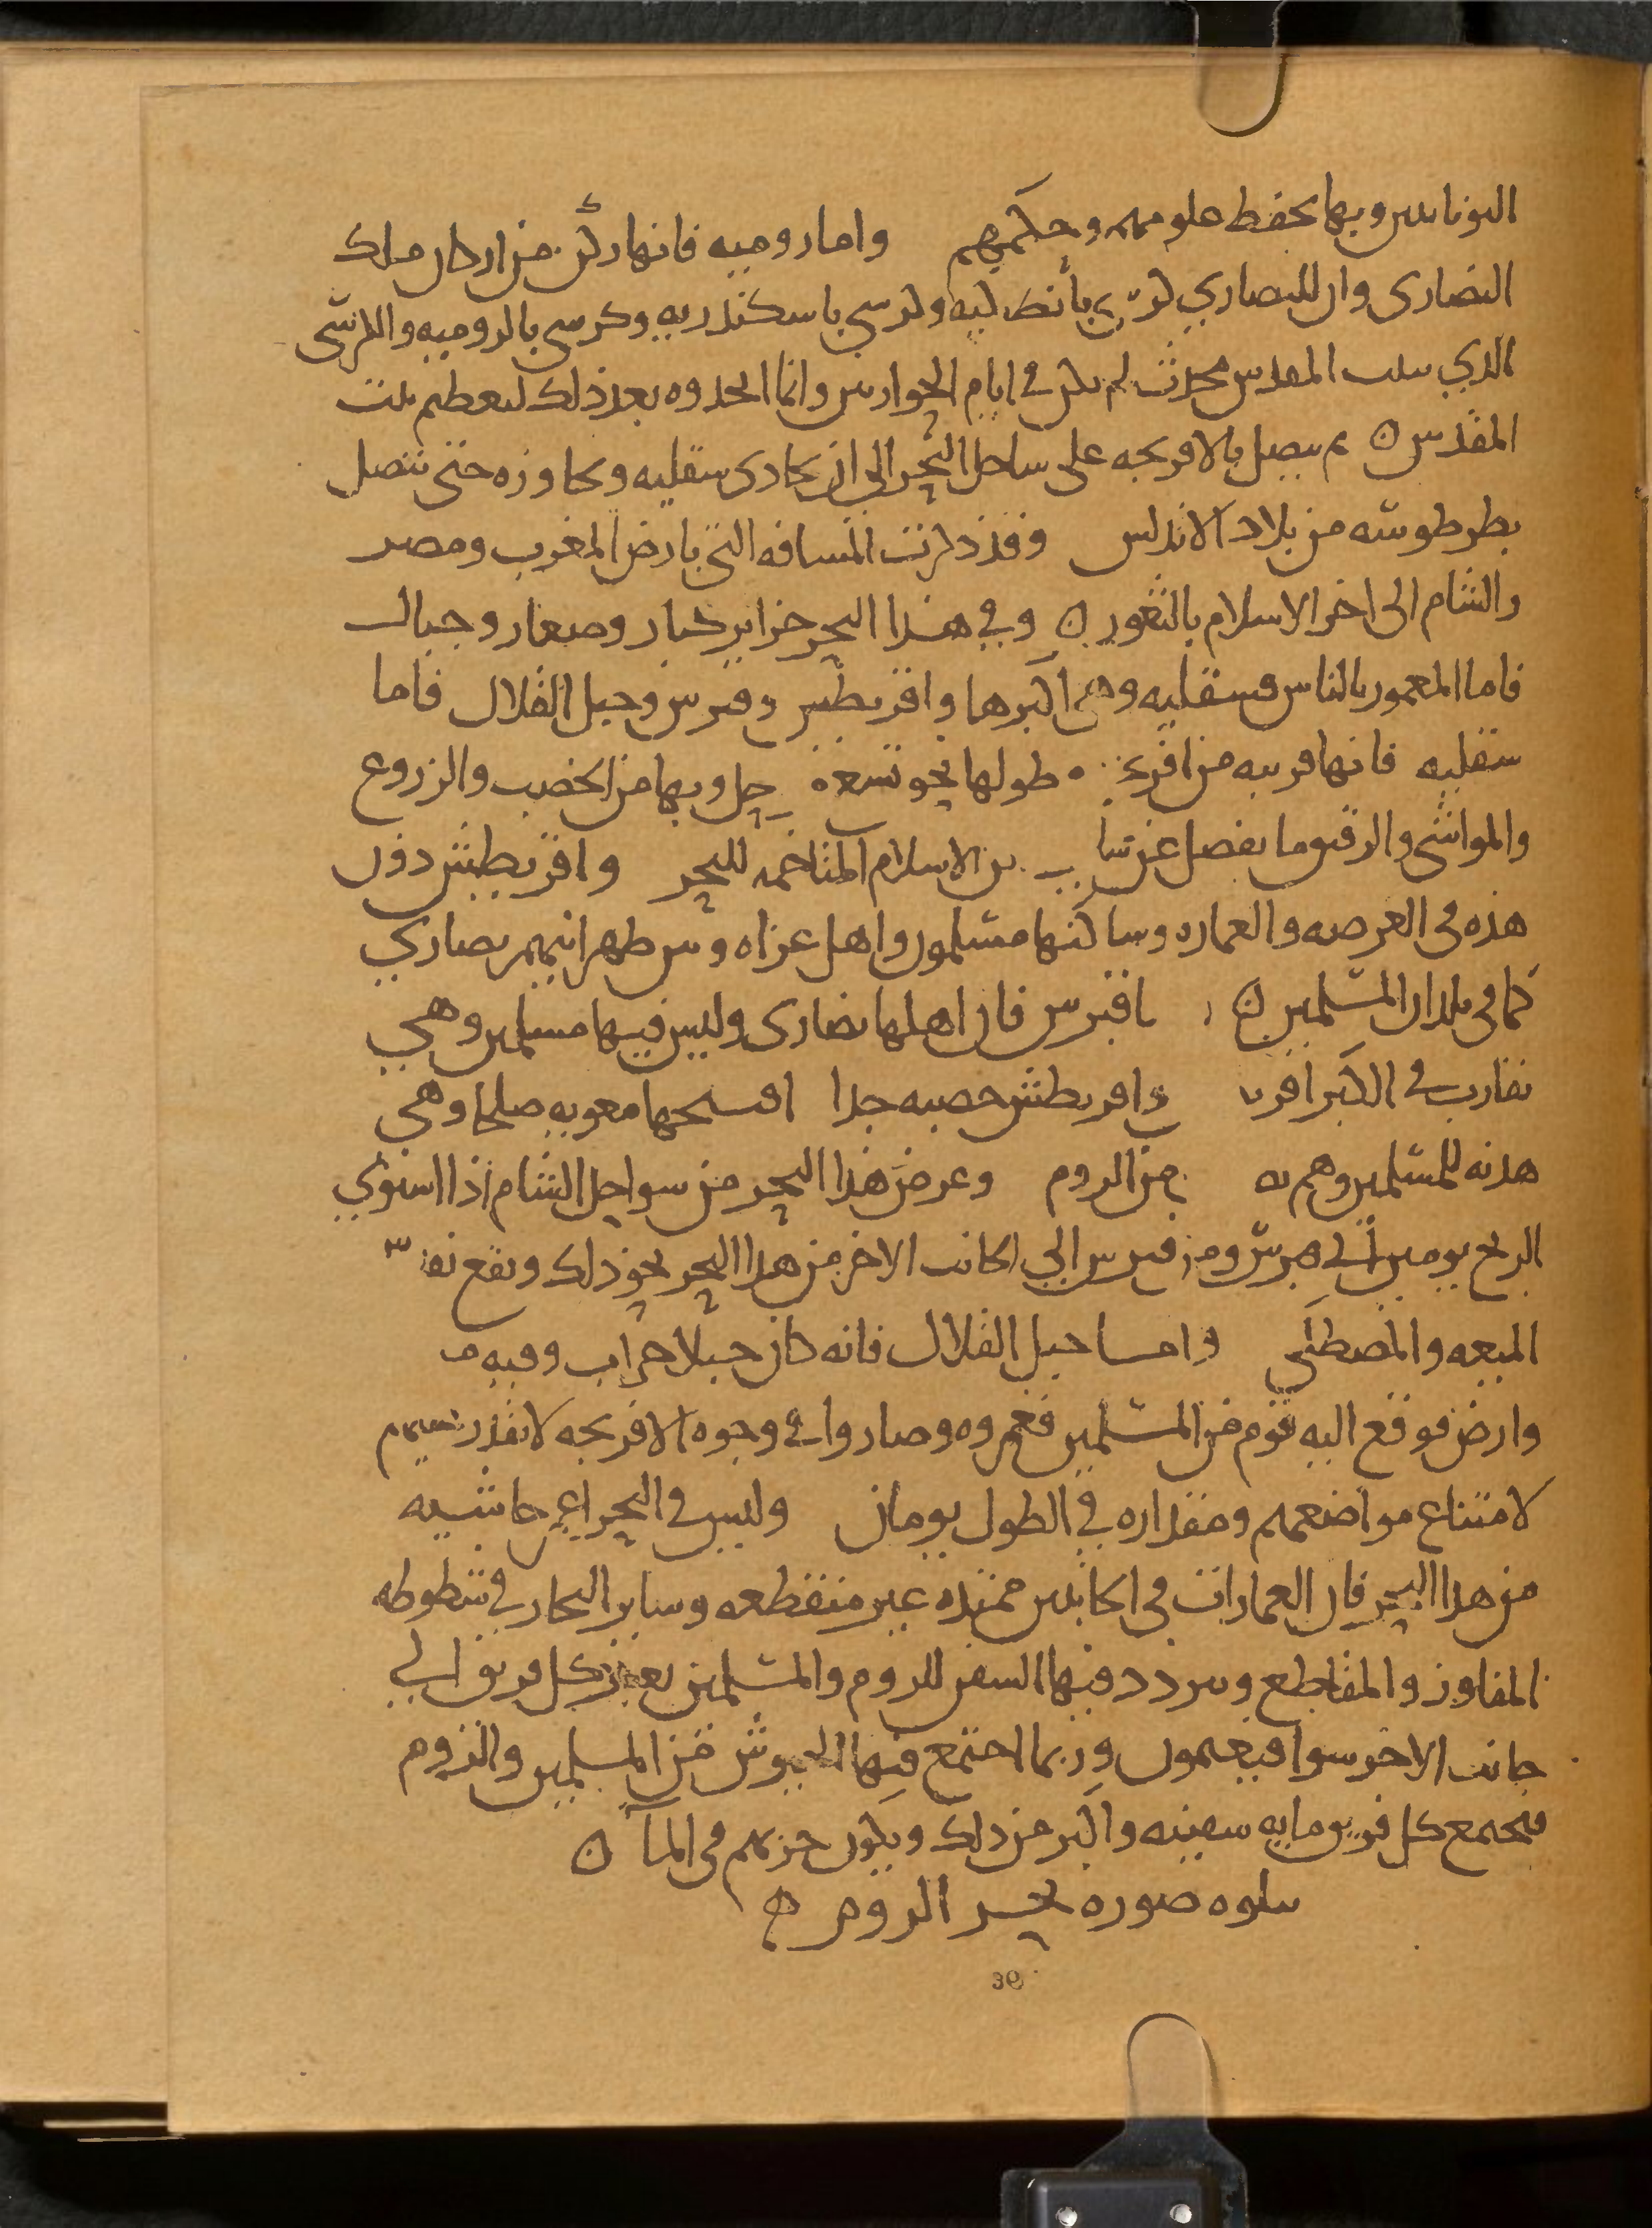 اليونانيين وبها يحفظ علومهم وحكمهم واما روميه فانها ركن من اركان ملك
النصارى وان للنصاري كرسي بانطاكيه وكرسي باسكندريه وكرسي بالروميه والكرسي
الذي ببيت المقدس محدث لم يكن في ايام الحواريين وانما اتخذوه بعد ذلك لتعظيم بيت
المقدس ثم يتصل بالافرنجه على ساحل البحر الي ان يحاذي سقليه ويجاوزه حتى يتصل
بطرطوشه من بلاد الاندلس وقد ذكرت المسافه التي بارض المغرب ومصر
والشام الى اخر الاسلام بالثغور وفي هذا البحر جزاير كبار وصغار وجبال
فاما المعمور بالناس فسقليه وهي اكبرها واقريطش وقبرس وجبل القلال فاما
سقليه فانها قريبه من افرنجه طولها نحو تسعه حل وبها من الخصب والزروع
والمواشي والرقيق ما يفضل عن سا ين الاسلام المتاخمه للبحر واقريطش دون
هذه في العرصه والعماره وساكنها مسلمون واهل غزاه وبين ظهرانيهم نصاري
كما في بلدان المسلمين ما قبرس فان اهلها نصارى وليس فيها مسلمين وهي
تقارب في الكبر اقريـ واقريطش خصبه جدا افتتحها معويه صلحا وهي
هدنه للمسلمين وهم به من الروم وعرض هذا البحر من سواحل الشام اذا استوي
الريح يومين الي قبرس ومن قبرس الي الجانب الاخر من هذا البحر نحو ذلك ويقع
الميعه والمصطكي واما جبل القلال فانه كان جبلا خراب وفيه مـ
وارض فوقع اليه قوم من المسلمين فعمروه وصاروا في وجوه الافرنجه لا يقدر عليهم
لامتناع مواضعهم ومقداره في الطول يومان وليس في البحر اعمر حاشيه
من هذا البحر فان العمارات في الجانبين ممتده غير منقطعه وساير البحار في شطوطه
المفاوز والمقاطع ويتردد فيها السفن للروم والمسلمين يعبر كل فريق الي
جانب الاخر سوا فيغنمون وربما اجتمع فيها الجيوش من المسلمين والروم
فيجتمع كل فريق مايه سفينه واكبر من ذلك ويكون حربهم في الماآ
يتلوه صوره بحر الروم
39